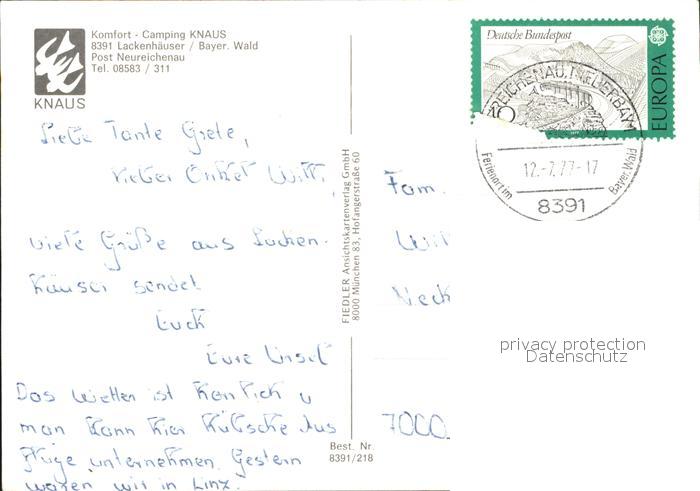 Komfort - Camping KNAUS
8391 Lackenhäuser / Bayer. Wald
Post Neureichenau
Tel. 08583 / 311
KNAUS
Liebe Tante Grete,
lieber Onkel Willi,
viele Grüße aus Lacken-
häuser sendet
Euch
Eure Ursel
Das Wetter ist herrlich u
man kann hier hübsche Aus
flüge unternehmen. Gestern
waren wir in Linz.
FIEDLER Ansichtskartenverlag GmbH
8000 München 83, Hofangerstraße 60
Best. Nr.
8391/218
Deutsche Bundespost
EUROPA
REICHENAU, NIEDERBAY
12.-7.77-17
Ferienort im
Bayer. Wald
8391
Fam.
Neck
7000
privacy protection
Datenschutz